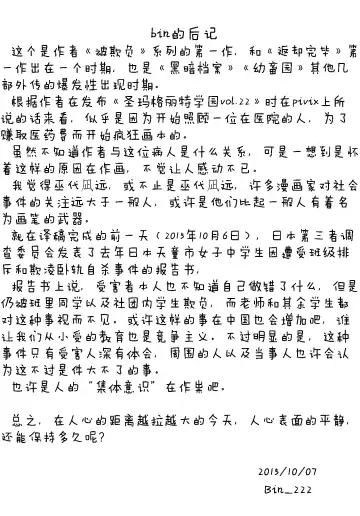 bin的后记
这个是作者《被欺负》系列的第一作，和《返却完毕》第
一作出在一个时期，也是《黑暗档案》《幼畜园》其他几
部外传的爆发性出现时期。
根据作者在发布《圣玛格丽特学园vol.22》时在pivix上所
说的话来看，似乎是因为开始照顾一位在医院的人，为了
赚取医药费而开始疯狂画本的。
虽然不知道作者与这位病人是什么关系，可是一想到是怀
着这样的原因在作画，不觉让人感动不已。
我觉得巫代凪远，或不止是巫代凪远，许多漫画家对社会
事件的关注远大于一般人，或许是他们比起一般人有着名
为画笔的武器。
就在译稿完成的前一天（2015年10月6日），日本第三者调
查委员会发表了去年日本天童市女子中学生因遭受班级排
斥和欺凌卧轨自杀事件的报告书，
报告书上说，受害者本人也不知道自己做错了什么，但是
仍被班里同学以及社团内学生欺负，而老师和其余学生都
对这种事视而不见。或许这样的事在中国也会增加吧，谁
让我们从小受的教育也是竞争主义。不过明显的是，这种
事件只有受害人深有体会，周围的人以及当事人也许会认
为这不过是件大不了的事。
也许是人的“集体意识”在作祟吧。
总之，在人心的距离越拉越大的今天，人心表面的平静，
还能保持多久呢？
2015/10/07
Bin_222